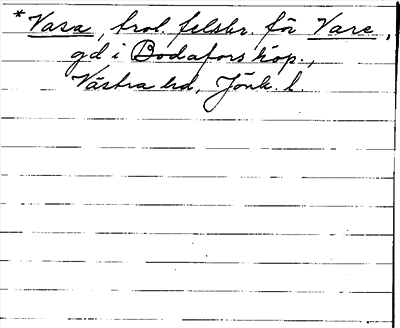 * Vara, trol. felskr. för Vare,
gd i Bodafors köp.,
Västra hd, Jönk. l.